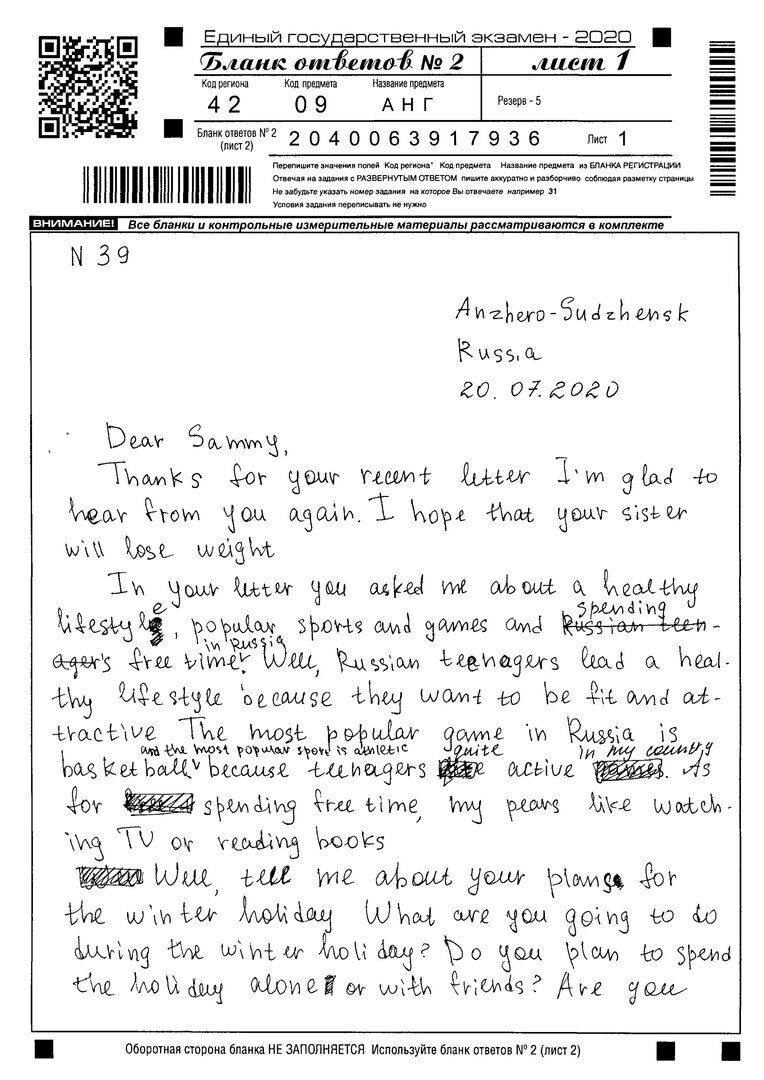 Единый государственный экзамен - 2020
Бланк ответов № 2 лист 1
Код региона Код предмета Название предмета
42 09 АНГ Резерв - 5
Бланк ответов № 2 (лист 2) 2040063917936 Лист 1
Перепишите значения полей Код региона" Код предмета Название предмета из БЛАНКА РЕГИСТРАЦИИ
Отвечая на задания с РАЗВЕРНУТЫМ ОТВЕТОМ пишите аккуратно и разборчиво соблюдая разметку страницы
Не забудьте указать номер задания на которое Вы отвечаете например 31
Условия задания переписывать не нужно
ВНИМАНИЕ! Все бланки и контрольные измерительные материалы рассматриваются в комплекте
N 39
Anzhero-Sudzhensk
Russia
20.07.2020
Dear Sammy,
Thanks for your recent letter I'm glad to
hear from you again. I hope that your sister
will lose weight
In your letter you asked me about a healthy
spending
lifestyle, popular sports and games and Russian teen-
in Russia
ager's free time. Well, Russian teenagers lead a heal-
thy lifestyle because they want to be fit and at-
tractive The most popular game in Russia is
and the most popular sport is athletic quite in my country
basketball because teenagers active. As
for spending free time, my pears like watch-
ing TV or reading books
Well, tell me about your plans for
the winter holiday What are you going to do
during the winter holiday? Do you plan to spend
the holiday alone or with friends? Are you
Оборотная сторона бланка НЕ ЗАПОЛНЯЕТСЯ Используйте бланк ответов № 2 (лист 2)